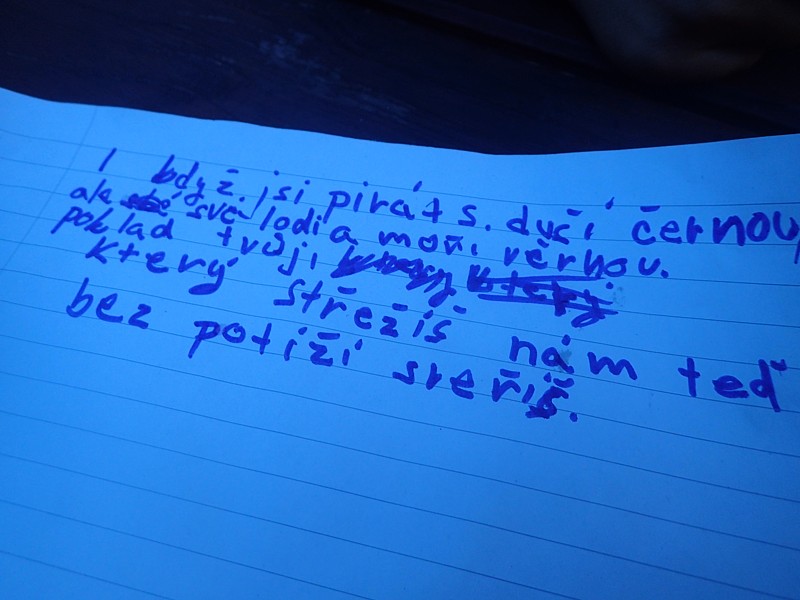 I když jsi pirát s. duší černou,
ale své lodi a moři věrnou.
poklad tvůj
který střežiš nám teď
bez potíží sveříš.